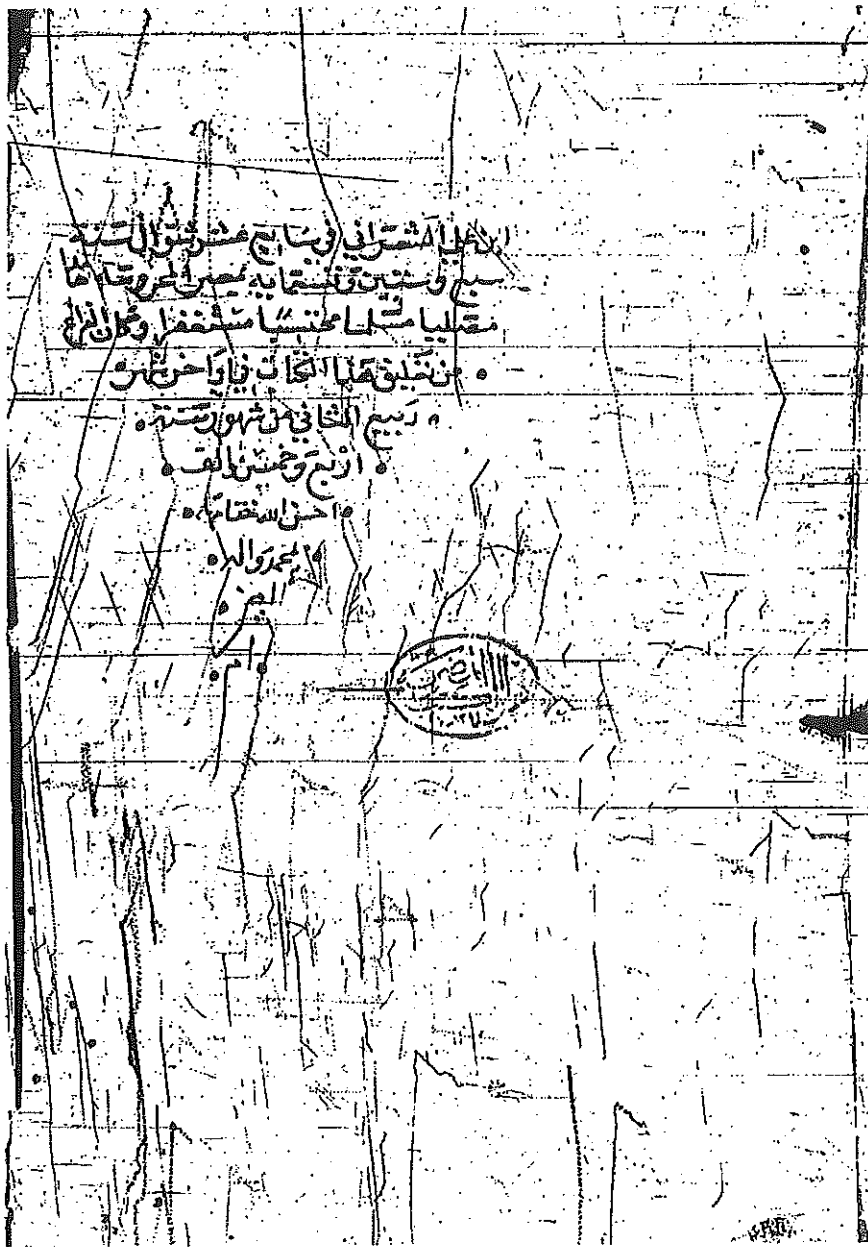 ابن علي الشعراني في سابع عشر شوال سنة
سبع وستين وتسعماية بمصر المحروسة
مصليا مسلما محتسبا مستغفرا وكان الفراغ
من تعليق هذا الكتاب في اواخر شهر
ربيع الثاني من شهور سنة
اربع وخمسين والف
احسن الله ختامها
بمحمد واله
امين